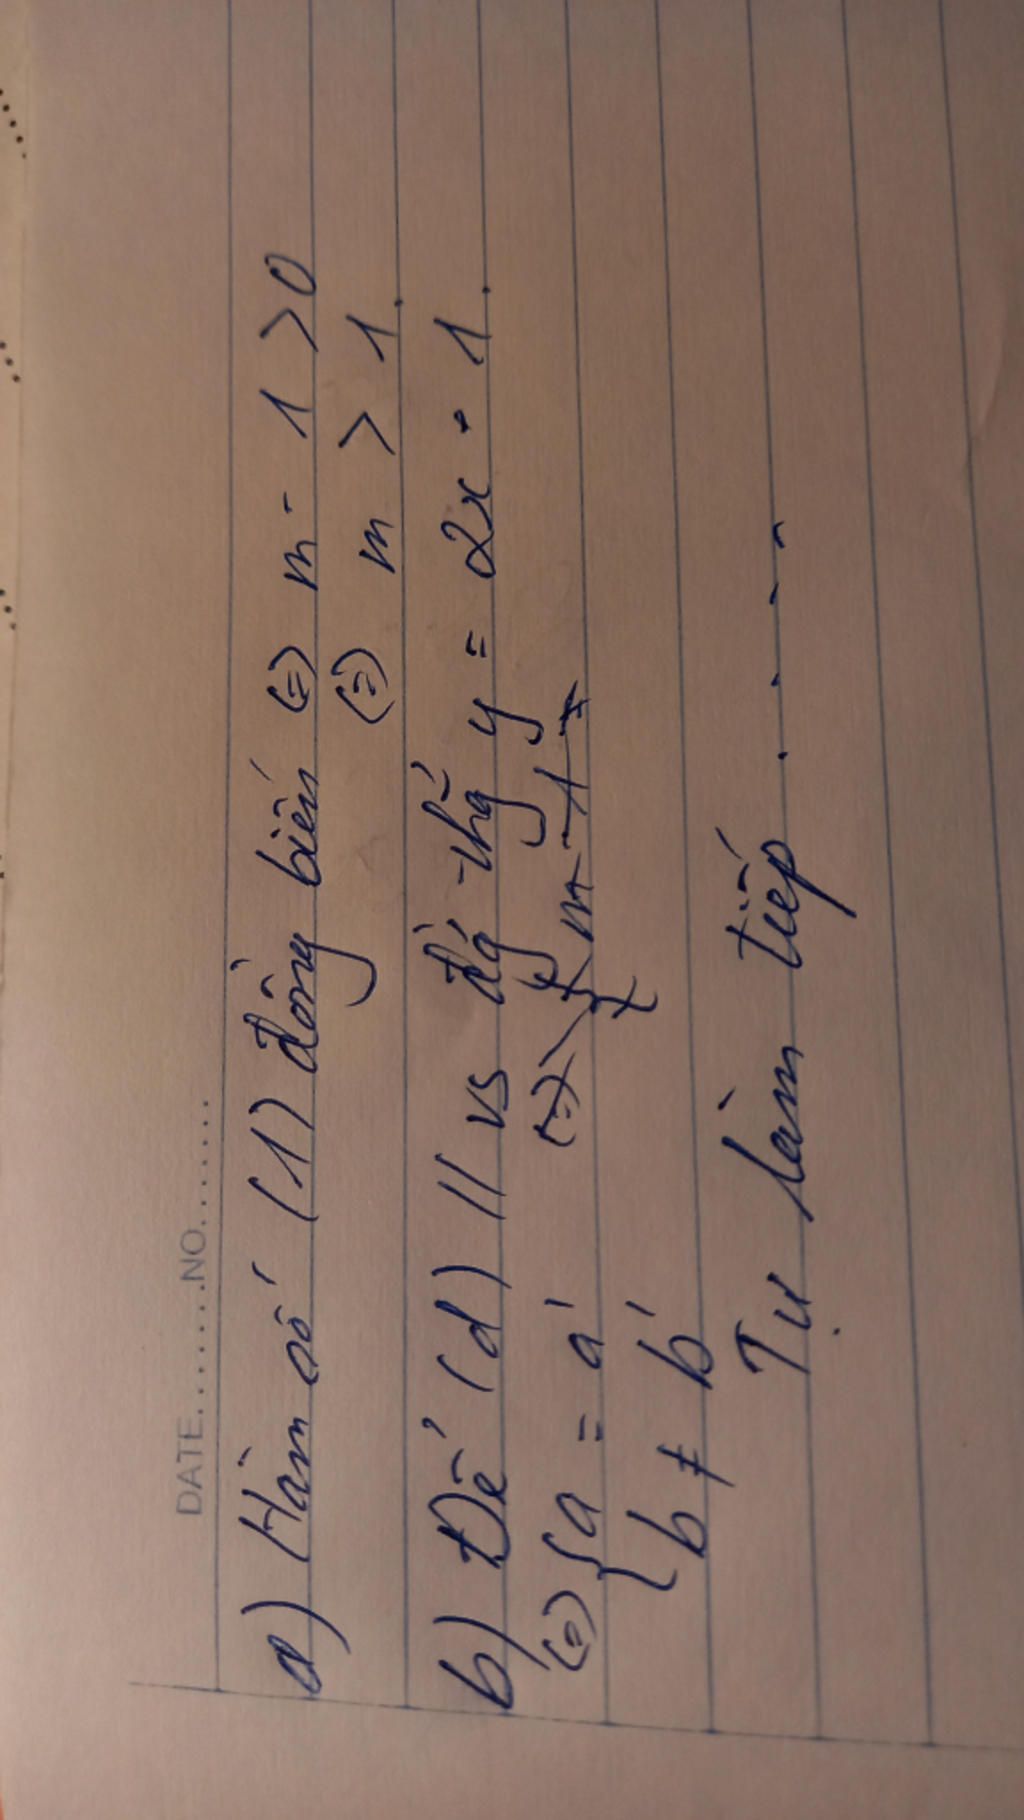 DATE.......NO.......
a) Hàm số (1) đồng biến (=) m - 1 > 0
(=) m > 1.
b) Để (d) // vs đg thg y = 2x + 1.
(=) { a = a' (=) { m - 1 =
{ b ≠ b'
Tự làm tiếp . . . . .